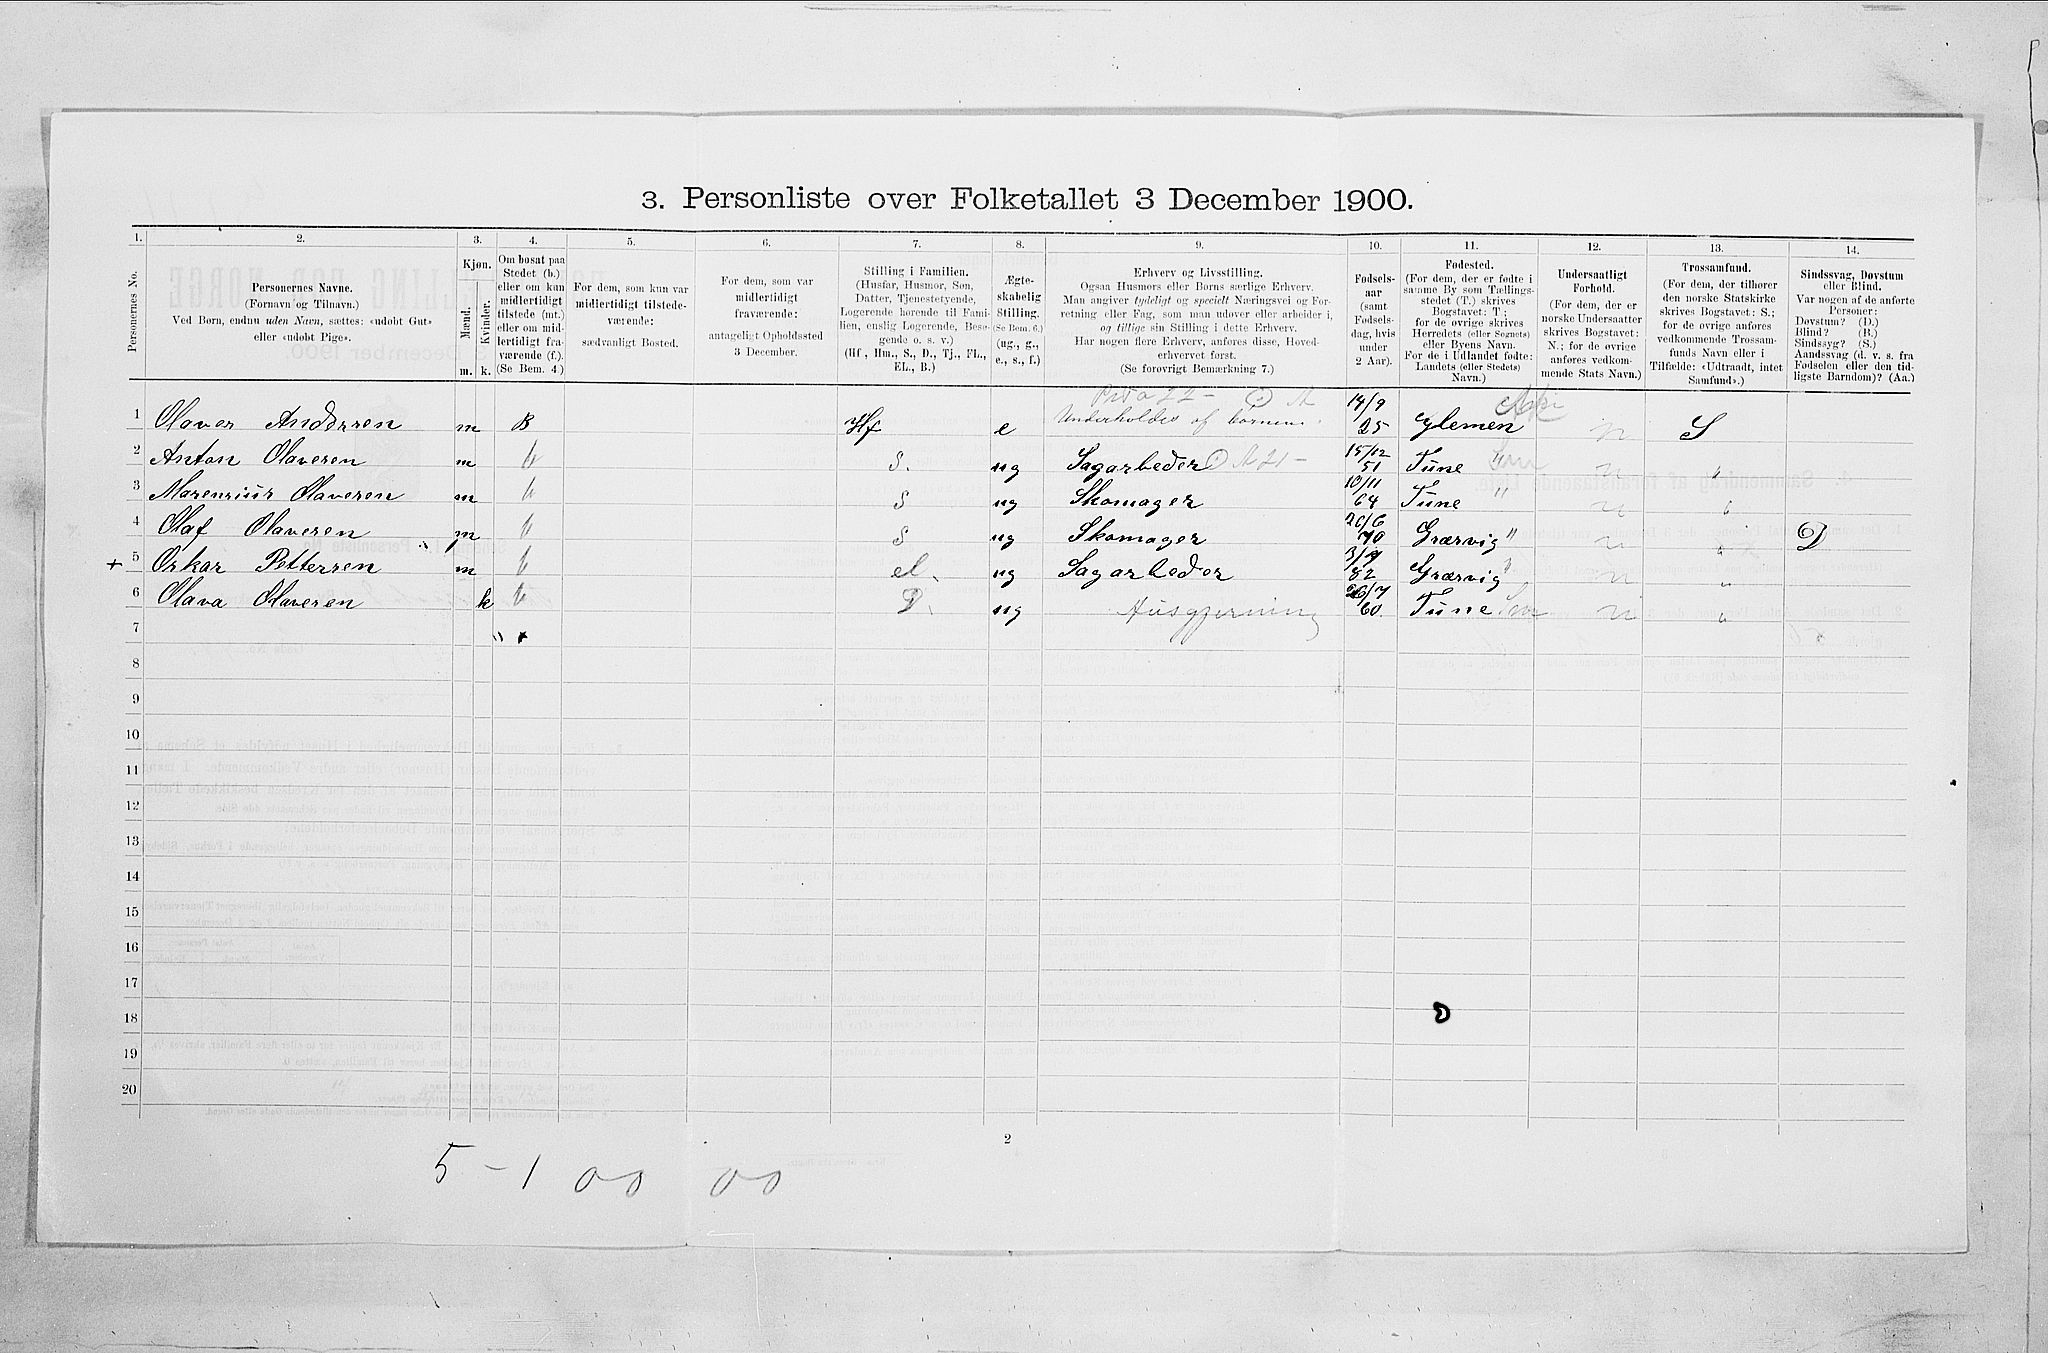 3. Personliste over Folketallet 3 December 1900.
1. 2. 3. 4. 5. 6. 7. 8. 9. 10. 11. 12. 13. 14.
Personernes No.
Personernes Navne.
(Fornavn og Tilnavn.)
Ved Børn, endnu uden Navn, sættes: «udøbt Gut»
eller «udøbt Pige».
Kjøn.
Mænd.
Kvinder.
m. k.
Om bosat paa
Stedet (b.)
eller om kun
midlertidigt
tilstede (mt.)
eller om mid-
lertidigt fra-
værende (f.).
(Se Bem. 4.)
For dem, som kun var
midlertidigt tilstede-
værende:
sædvanligt Bosted.
For dem, som var
midlertidigt
fraværende:
antageligt Opholdssted
3 December.
Stilling i Familien.
(Husfar, Husmor, Søn,
Datter, Tjenestetyende,
Logerende hørende til Fami-
lien, enslig Logerende, Besø-
gende o. s. v.)
(Hf, Hm., S., D., Tj., FL.,
EL., B.)
Ægte-
skabelig
Stilling.
(Se Bem. 6.)
(ug., g.,
e., s., f.)
Erhverv og Livsstilling.
Ogsaa Husmors eller Børns særlige Erhverv.
Man angiver tydeligt og specielt Næringsvei og For-
retning eller Fag, som man udøver eller arbeider i,
og tillige sin Stilling i dette Erhverv.
Har nogen flere Erhverv, anføres disse, Hoved-
erhvervet først.
(Se forøvrigt Bemærkning 7.)
Fødsels-
aar
(samt
Fødsels-
dag, hvis
under
2 Aar).
Fødested.
(For dem, der er fødte i
samme By som Tællings-
stedet (T.) skrives
Bogstavet: T;
for de øvrige skrives
Herredets (eller Sognets)
eller Byens Navn.
For de i Udlandet fødte:
Landets (eller Stedets)
Navn.)
Undersaatligt
Forhold.
(For dem, der er
norske Undersaatter
skrives Bogstavet:
N.; for de øvrige
anføres vedkom-
mende Stats Navn.)
Trossamfund.
(For dem, der tilhører
den norske Statskirke
skrives Bogstavet: S.;
for de øvrige anføres
vedkommende Trossam-
funds Navn eller i
Tilfælde: «Udtraadt, intet
Samfund».)
Sindssvag, Døvstum
eller Blind.
Var nogen af de anførte
Personer:
Døvstum? (D.)
Blind? (B.)
Sindssyg? (S.)
Aandssvag (d. v. s. fra
Fødselen eller den tid-
ligste Barndom)? (Aa.)
1 Olaves Anderssen m B Hf e Underholdes af börnene 14/9 25 Glemen n S
2 Anton Olavesen m b S. ug Sagarbeder 15/12 51 Tune " n "
3 Marensius Olavesen m b S ug Skomager 10/11 64 Tune " n "
4 Olaf Olavesen m b S ug Skomager 26/6 70 Græsvig " n " D
+ 5 Oskar Pettersen m b el. ug Sagarbeder 82 Græsvig " n "
6 Olava Olavesen k b D. ug Husgjerning 60 Tune n "
7
8
9
10
11
12
13
14
15
16
17
18
19
20
2
5 - 1 00 00